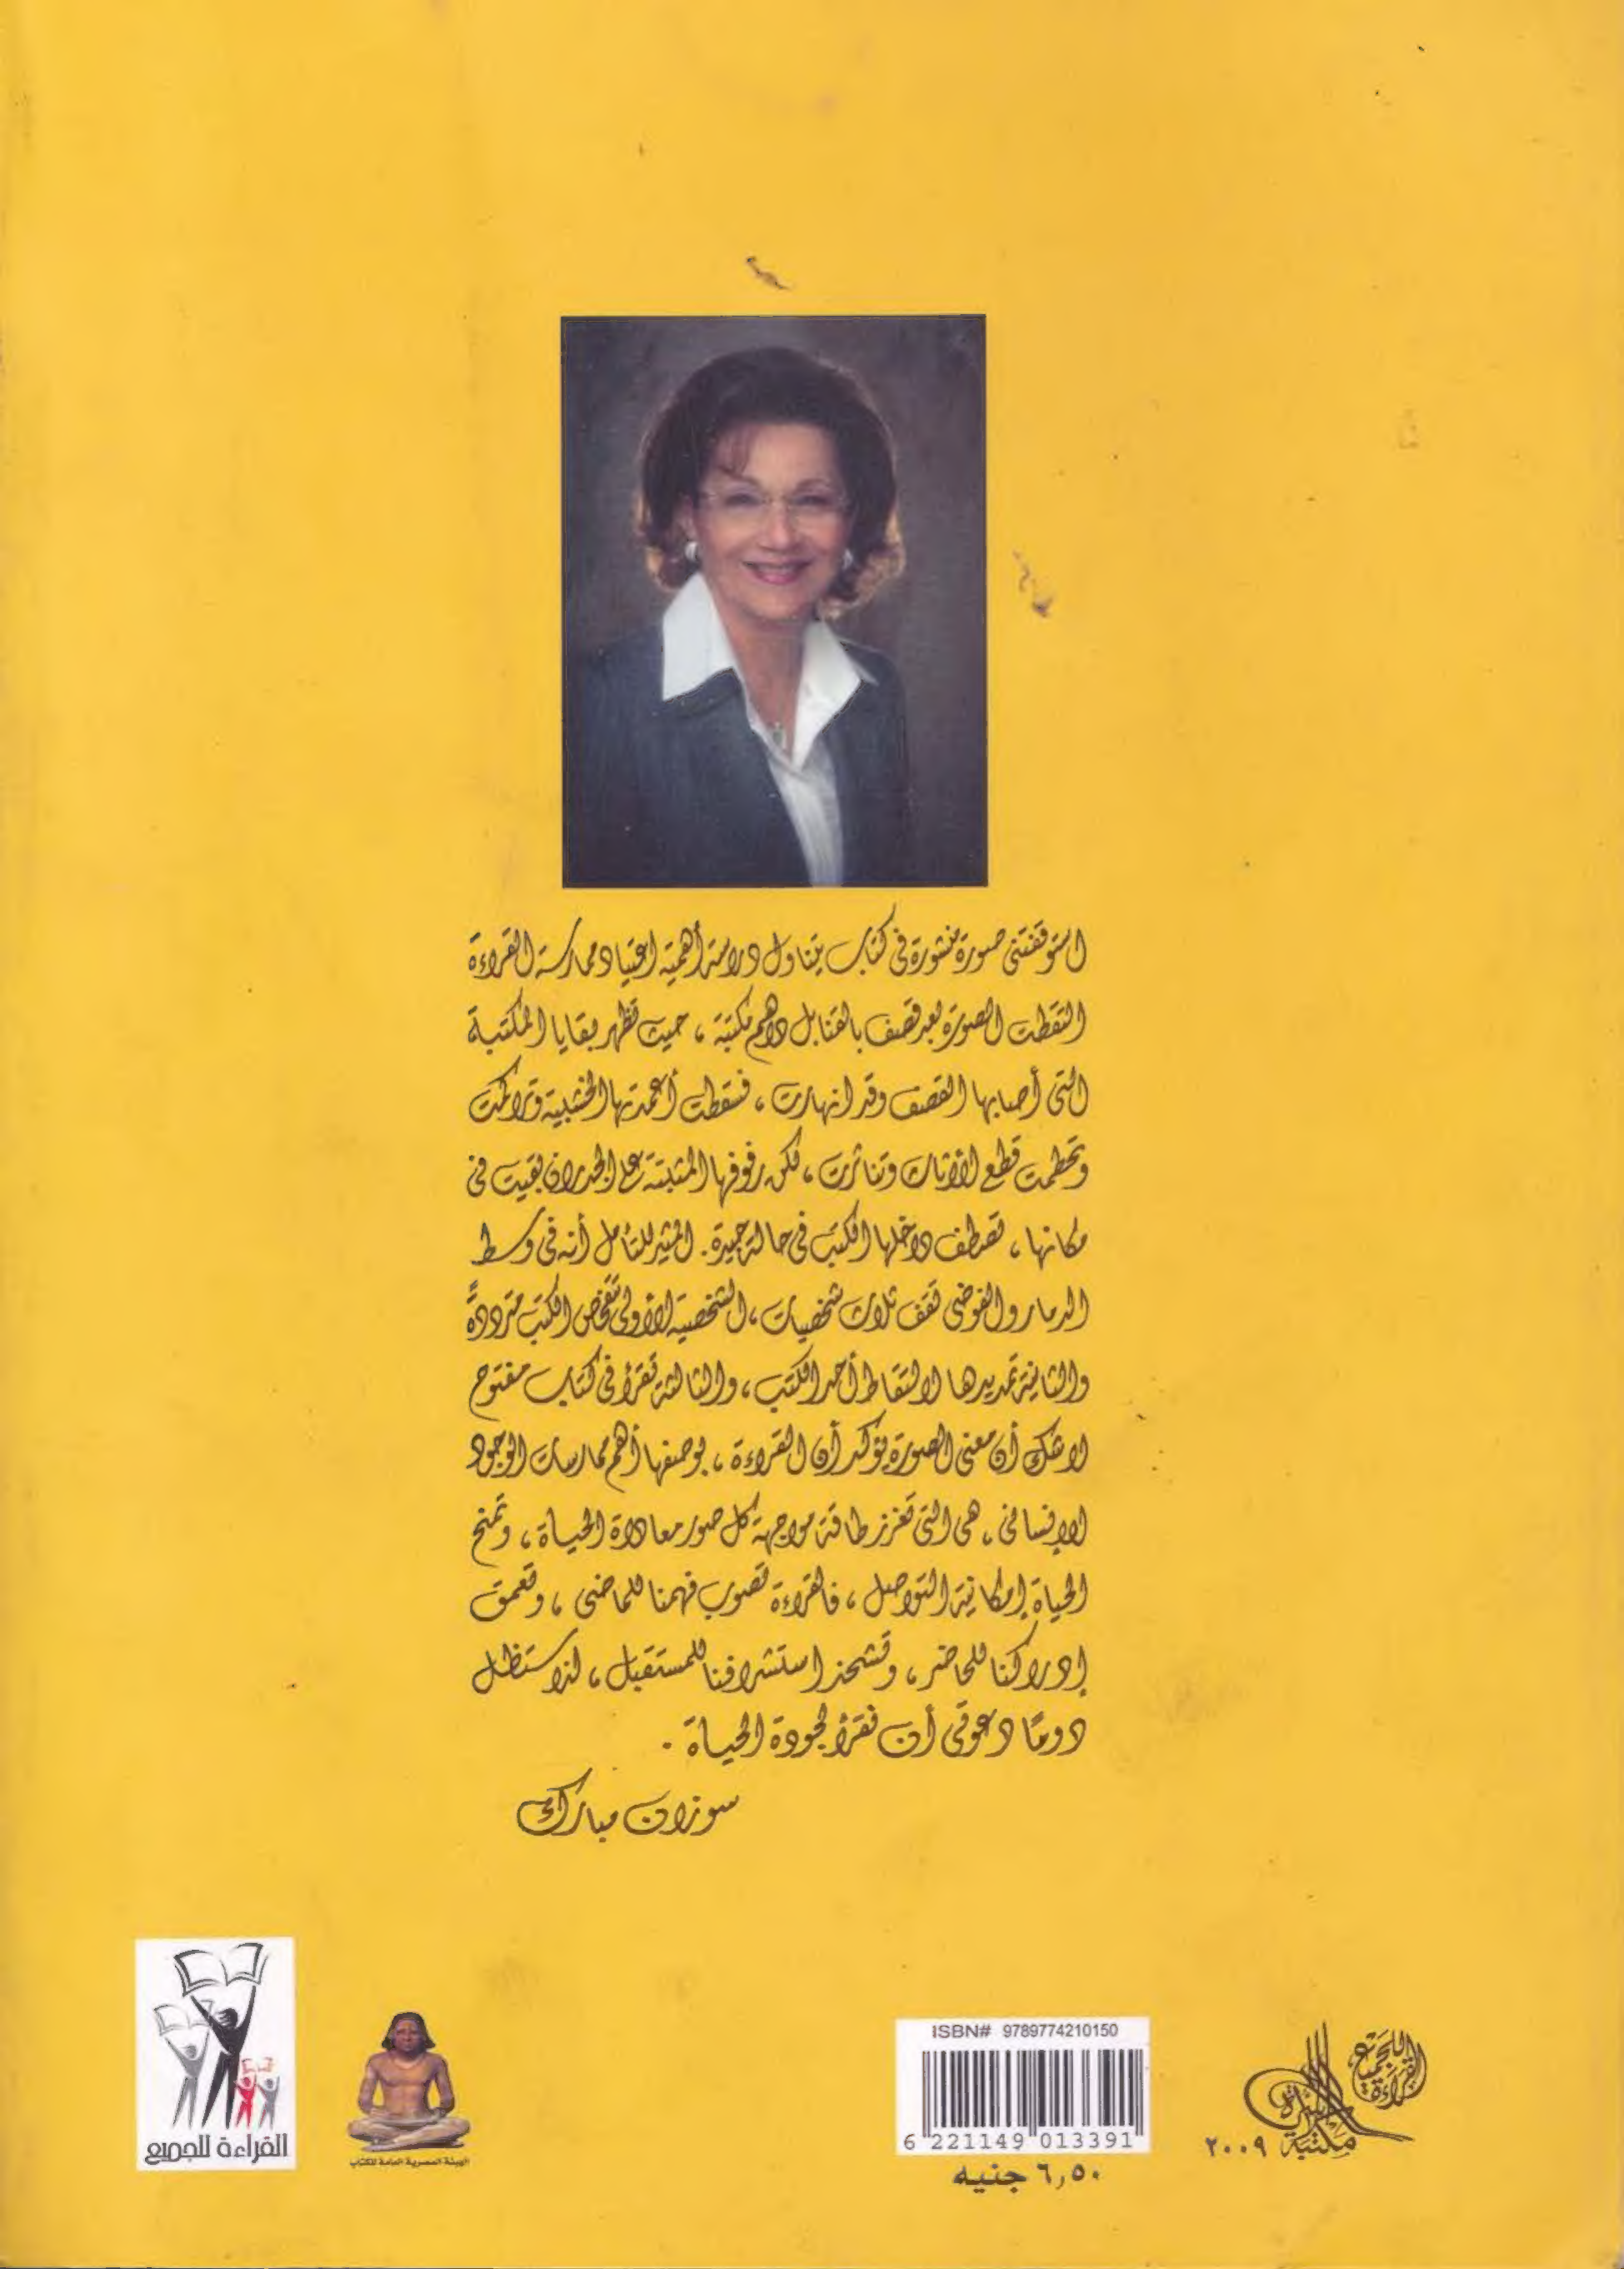 استوقفتنى صورة منشورة فى كتاب يتناول دراسة أهمية اعتياد ممارسة القراءة
التقطت الصورة بعد قصف بالقنابل داهم مكتبة ، حيث تظهر بقايا المكتبة
التى أصابها القصف وقد انهارت ، فسقطت أعمدتها الخشبية وتراكمت
وتحطمت قطع الأثاث وتناثرت ، لكن رفوفها المثبتة على الجدران بقيت فى
مكانها ، تصطف داخلها الكتب فى حالة جيدة . المثير للتأمل أنه فى وسط
الدمار والفوضى تقف ثلاث شخصيات ، الشخصية الأولى تتفحص الكتب مترددةً
والثانية تمد يدها لالتقاط أحد الكتب ، والثالثة تقرأ فى كتاب مفتوح
لاشك أن معنى الصورة يؤكد أن القراءة ، بوصفها أهم ممارسات الوجود
الإنسانى ، هى التى تعزز طاقة مواجهة كل صور معاداة الحياة ، وتمنح
الحياة إمكانية التواصل ، فالقراءة تصوب فهمنا للماضى ، وتعمق
إدراكنا للحاضر ، وتشحذ استشرافنا للمستقبل ، لذا ستظل
دومًا دعوتى أن نقرأ لجودة الحياة .
سوزان مبارك
القراءة للجميع
الهيئة المصرية العامة للكتاب
ISBN# 9789774210150
6 221149 013391
٦,٥٠ جنيه
القراءة للجميع
مكتبة الأسرة
٢٠٠٩